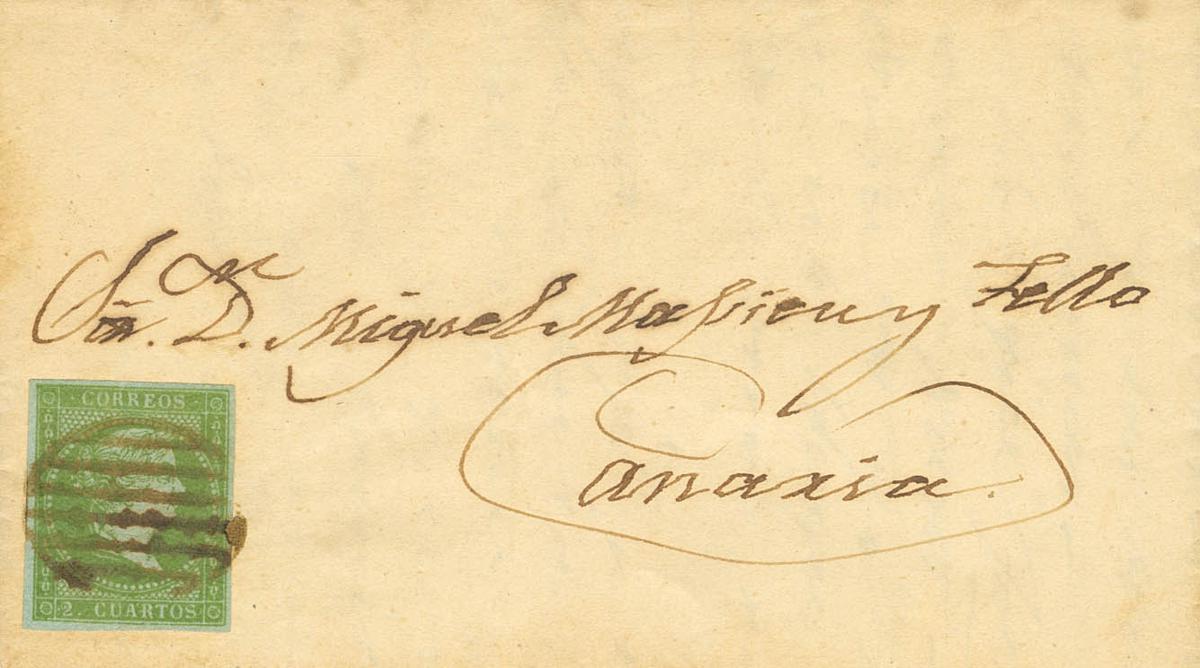 Sr. D. Miguel Massieu y Tello
Canaria.
CORREOS
2. CUARTOS